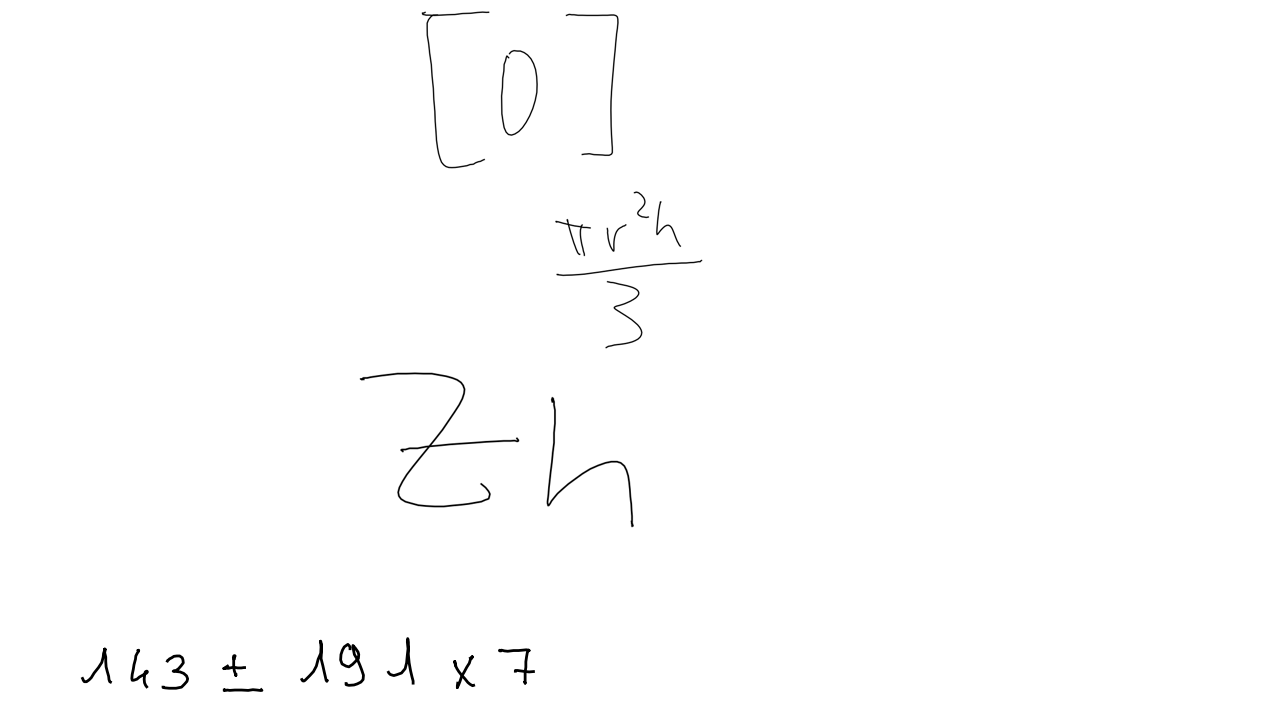 [0]
πr²h
3
Zh
143 ± 191 x 7